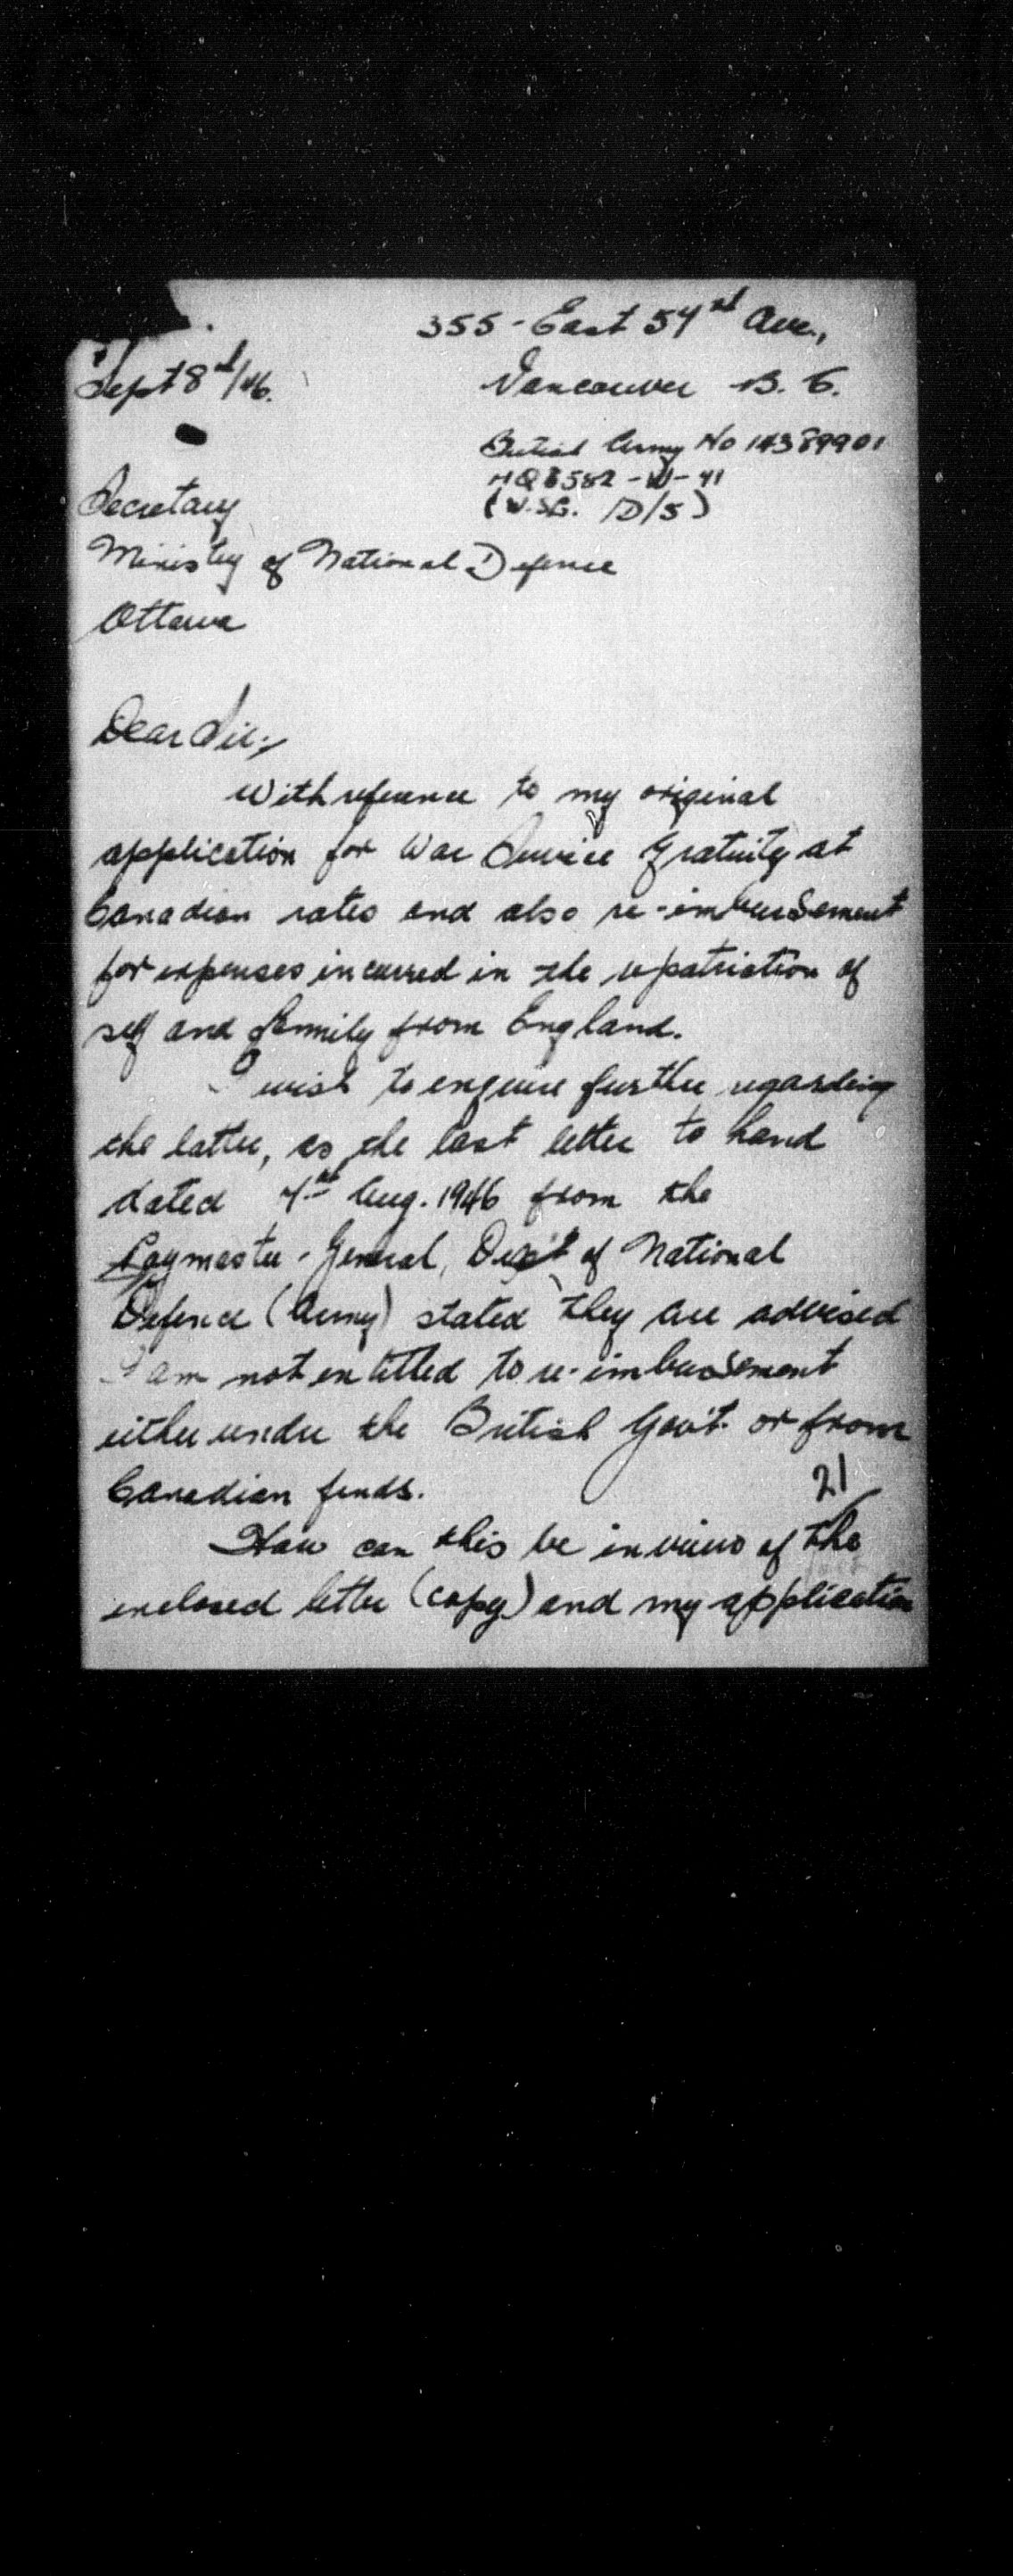 355 - East 54th Ave.,
Sept 8th/46.
Vancouver B. C.
British Army No 14389901
HQ 8582 - W - 41
(W.S.G. /D/5)
Secretary
Ministry of National Defence
Ottawa
Dear Sir:,
With reference to my original
application for War Service Gratuity at
Canadian rates and also re-imbursement
for expenses incurred in the repatriation of
self and family from England.
I wish to enquire further regarding
the latter, as the last letter to hand
dated Aug. 1946 from the
Paymaster-General, Dep't of National
Defence (Army) stated they are advised
I am not entitled to re-imbursement
either under the British Gov't. or from
Canadian funds.
21
How can this be in view of the
enclosed letter (copy) and my application